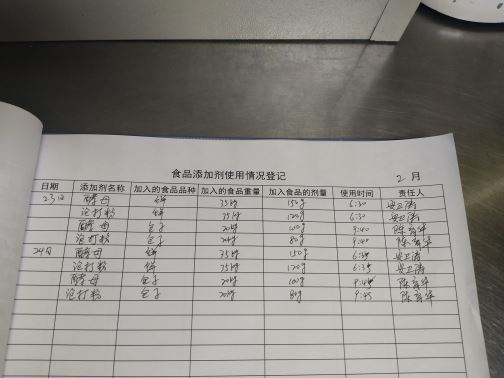 食品添加剂使用情况登记
2月
日期 添加剂名称 加入的食品品种 加入的食品重量 加入食品的剂量 使用时间 责任人
23日 酵母 饼 35kg 150g 6:30 安卫涛
泡打粉 饼 35kg 120g 6:30 安卫涛
酵母 包子 20kg 100g 9:40
泡打粉 包子 20kg 80g 9:40
24日 酵母 饼 35kg 150g 6:35 安卫涛
泡打粉 饼 35kg 120g 6:35 安卫涛
酵母 包子 20kg 100g 9:45
泡打粉 包子 20kg 80g 9:45